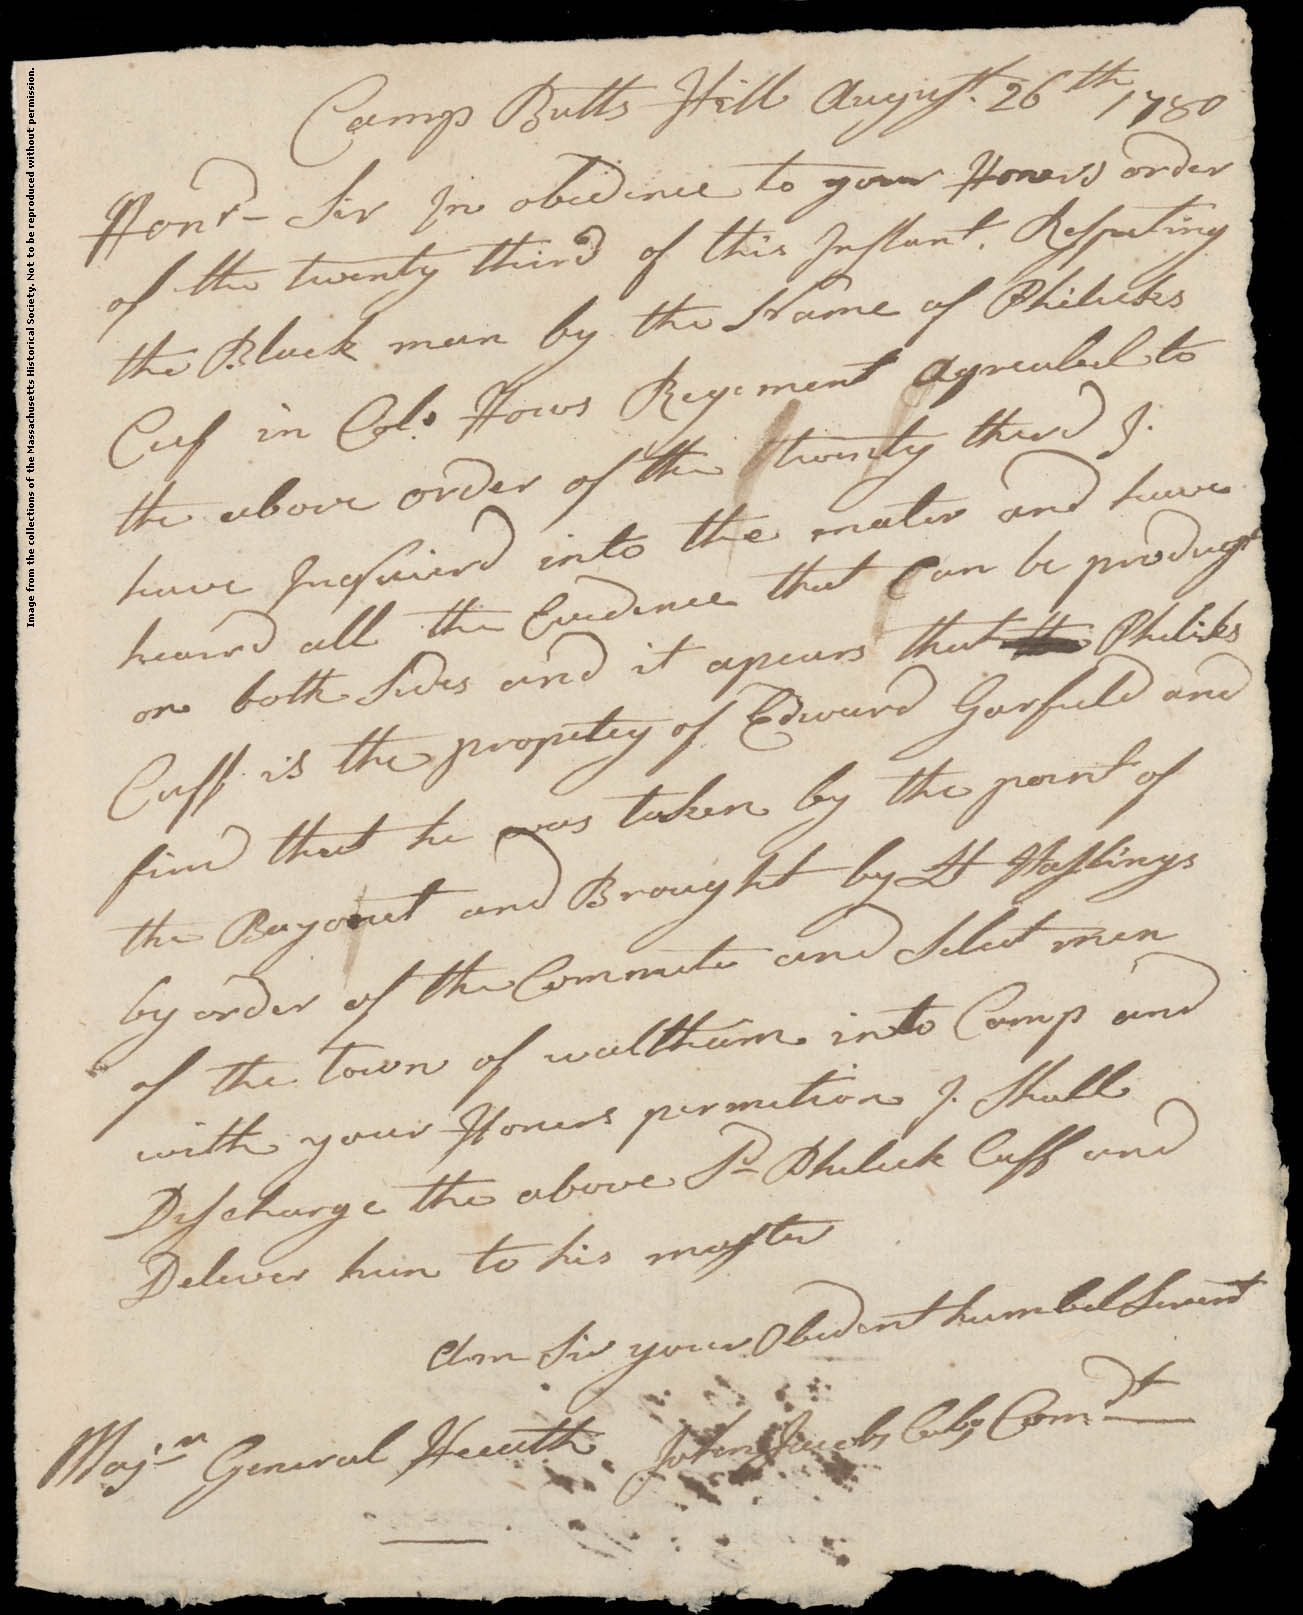 Image from the collections of the Massachusetts Historical Society. Not to be reproduced without permission.
Camp Butts Hill August 26th 1780
Honrd Sir In obedience to your Honers order
of the twenty third of this Instant. Respeting
the Black man by the Name of Philicks
Cuf in Colo Hows Regiment agreabel to
the above order of the twenty third I.
have Inquierd into the mater and have
heard all the Evedence that Can be produgt
on both Sides and it apears that Philiks
Cuff is the propetey of Edward Garfield and
find that he was taken by the point of
the Bayonet and Brought by Lt Hastings
by order of the Commete and Select men
of the town of waltham into Camp and
with your Honers permetion I. Shall
Discharge the above Sd Phelick Cuff and
Delever him to his master
Am Sir your Obedent humbel Servent
Majr General Heath John Jacobs Colo Comdt